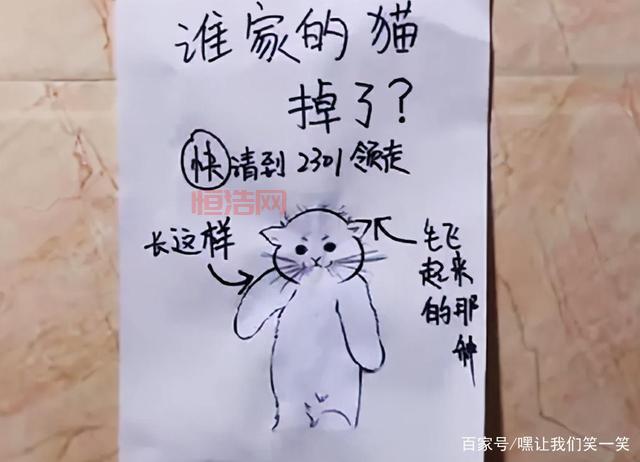 谁家的猫
掉了?
快请到2301领走
恒浩网
长这样
毛飞
起来
的那
种
百家号/嘿让我们笑一笑